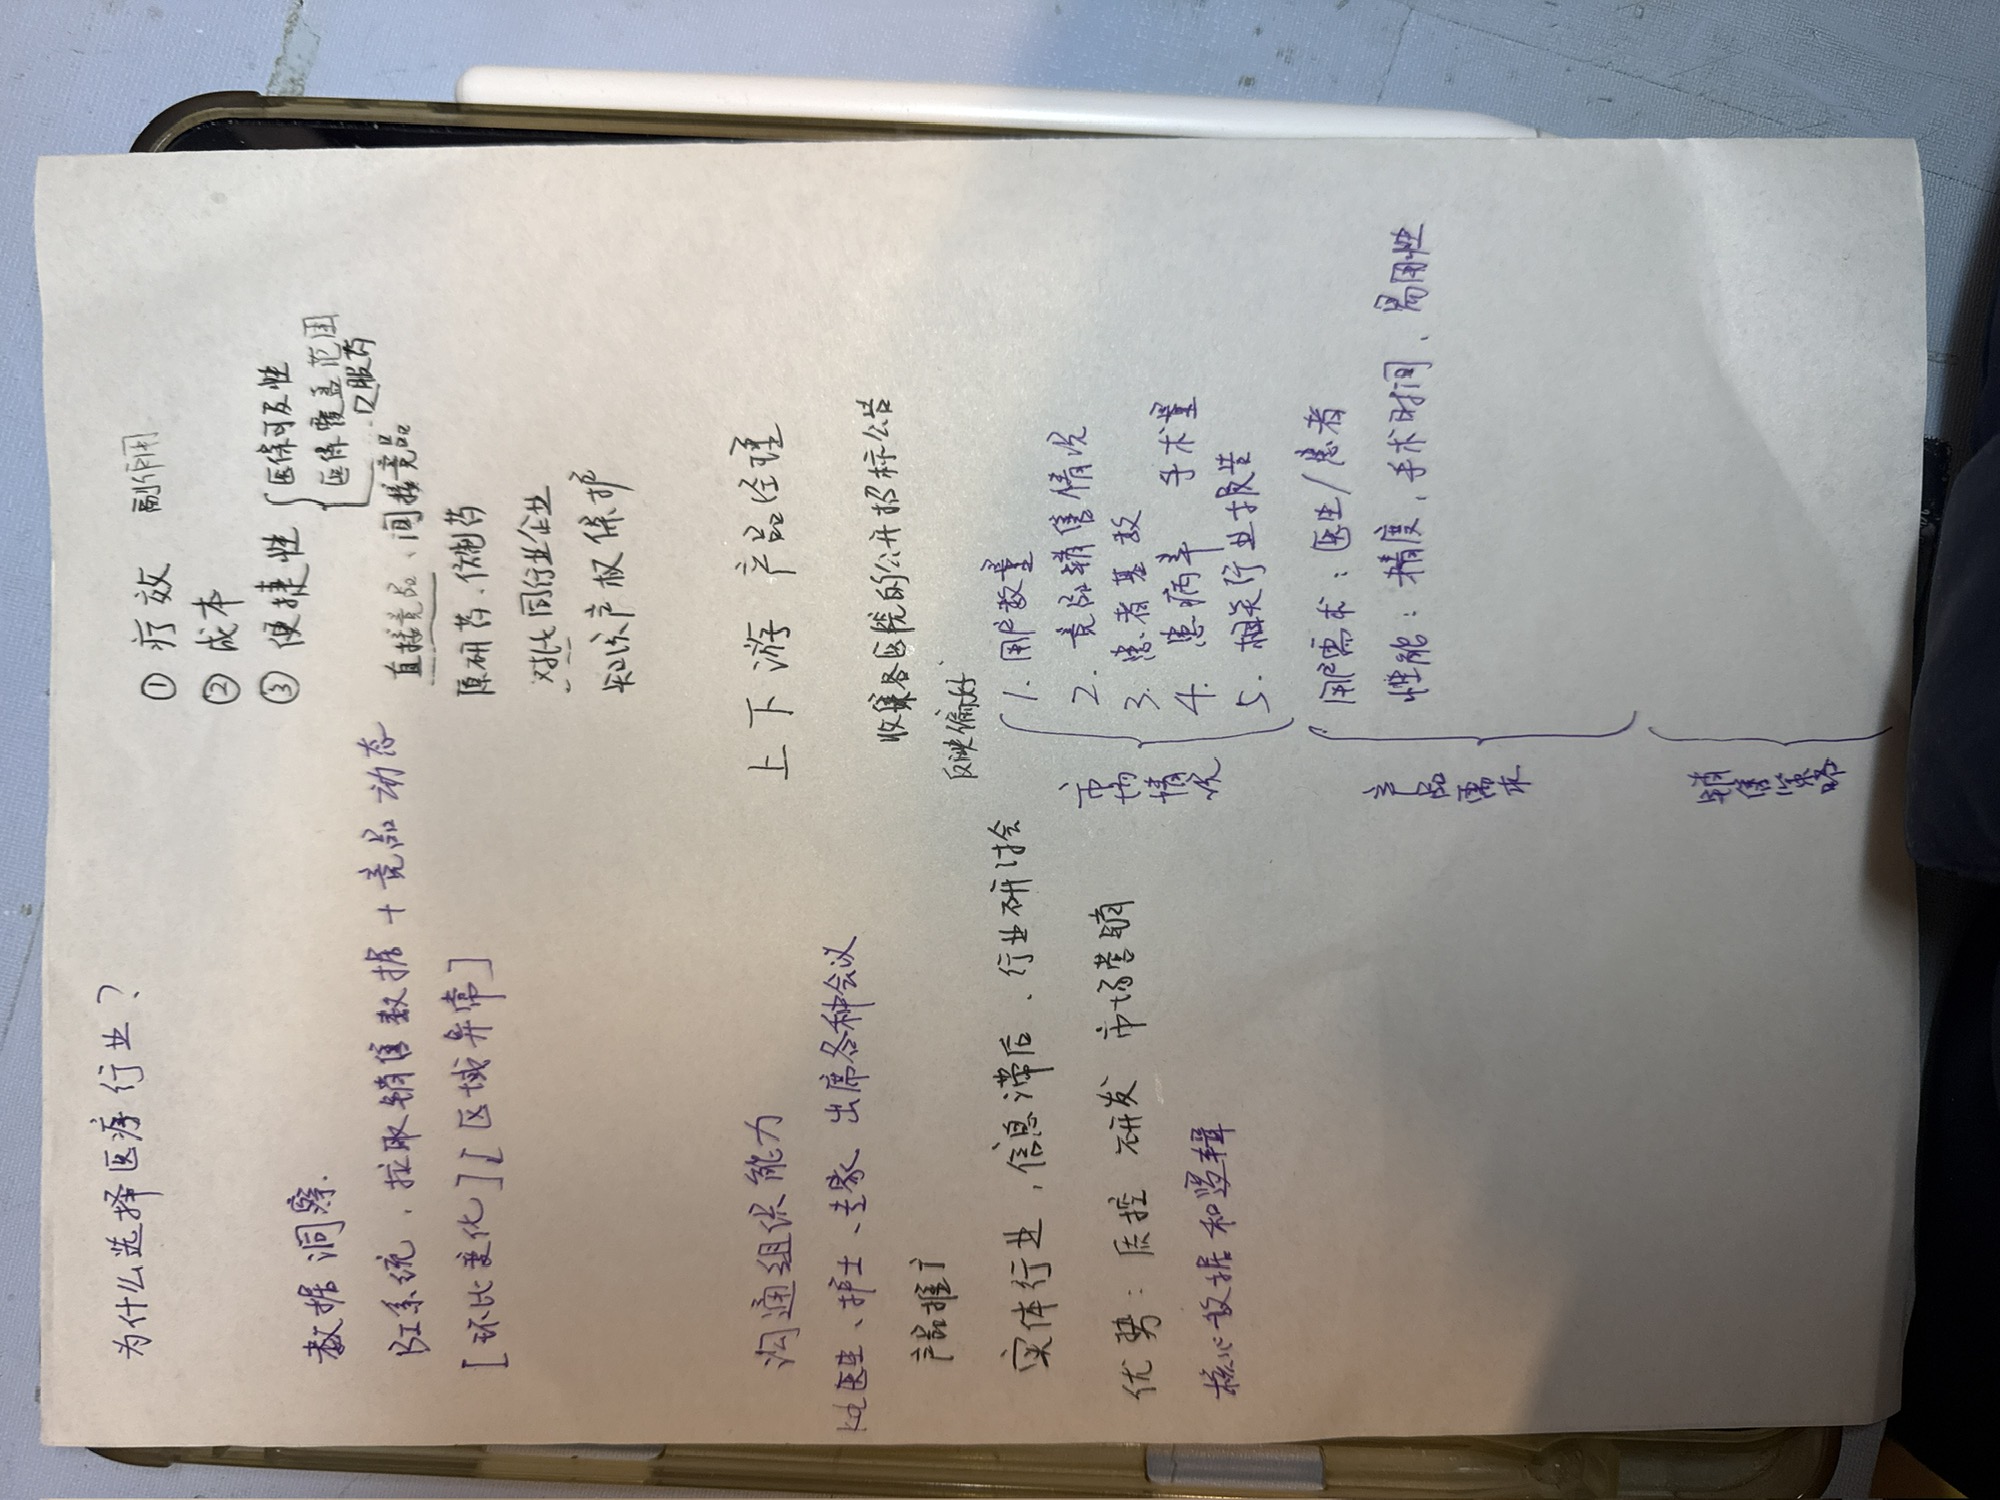 为什么选择医疗行业？
数据洞察.
BI系统，拉取销售数据 + 竞品动态
[环比变化][区域异常]
沟通组织能力
医生、护士、专家、出席各种会议
产品推广
实体行业，信息滞后、行业研讨会
优势：质控 研发 市场营销
核心数据和逻辑
① 疗效 副作用
② 成本
③ 便捷性
医保可及性
医保覆盖范围
口服药
直接竞品、间接竞品
原研药、仿制药
对比同行业企业
知识产权保护
上下游 产品经理
收集各医院的公开招标公告
反映偏好
市场情况
1. 用户数量
2. 竞品销售情况
3. 患者基数
4. 患病率 手术量
5. 相关行业报告
产品需求
用户需求：医生/患者
性能：精度、手术时间、易用性
销售策略